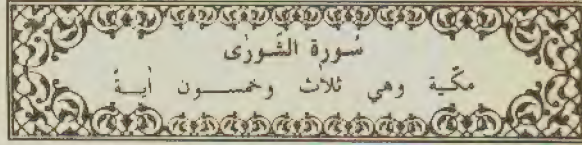 سُورة الشّورٰى
مكّية وهي ثلاث وخمسون أية